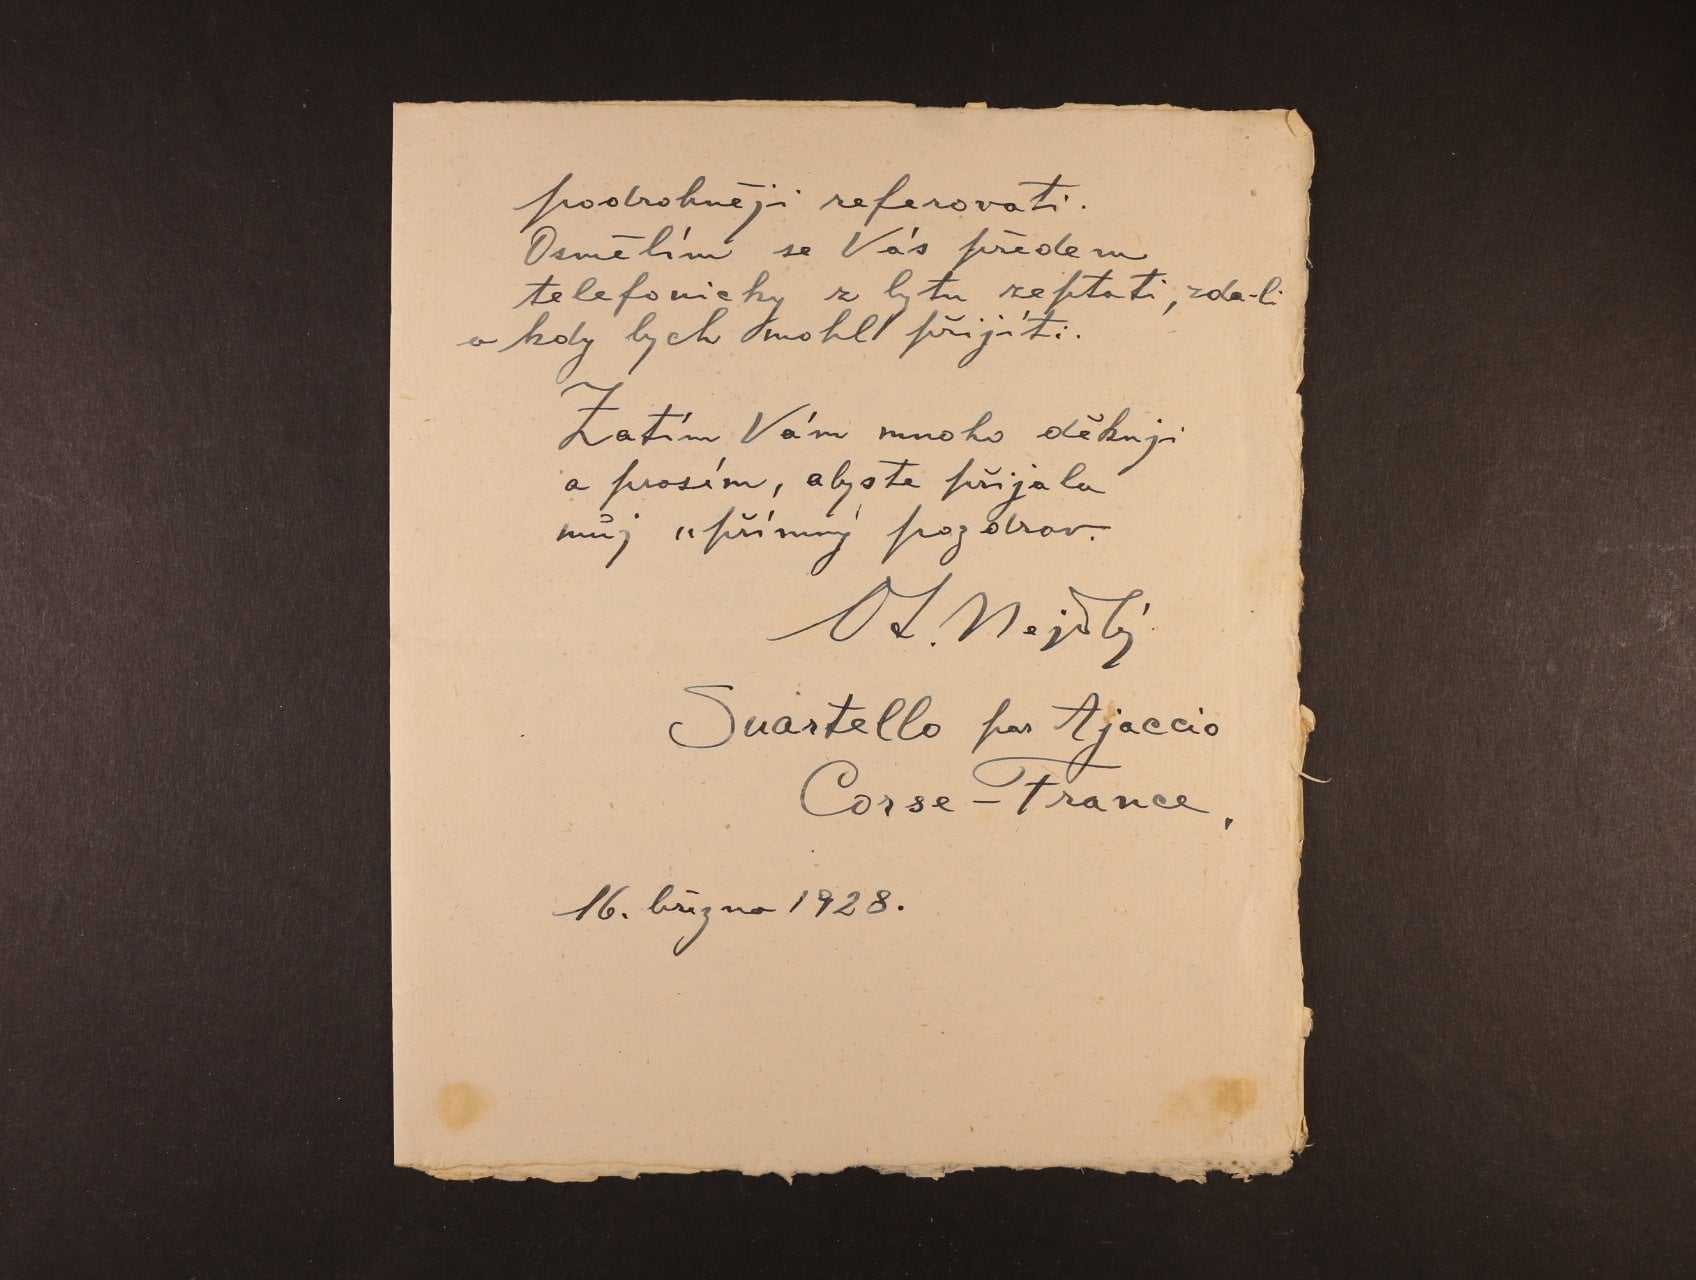 podrobněji referovati.
Osmělím se Vás předem
telefonicky z bytu zeptati, zda-li
a kdy bych mohl přijíti.
Zatím Vám mnoho děkuji
a prosím, abyste přijala
můj upřímný pozdrav.
Ot. Nejedlý
Suartello par Ajaccio
Corse - France,
16. března 1928.